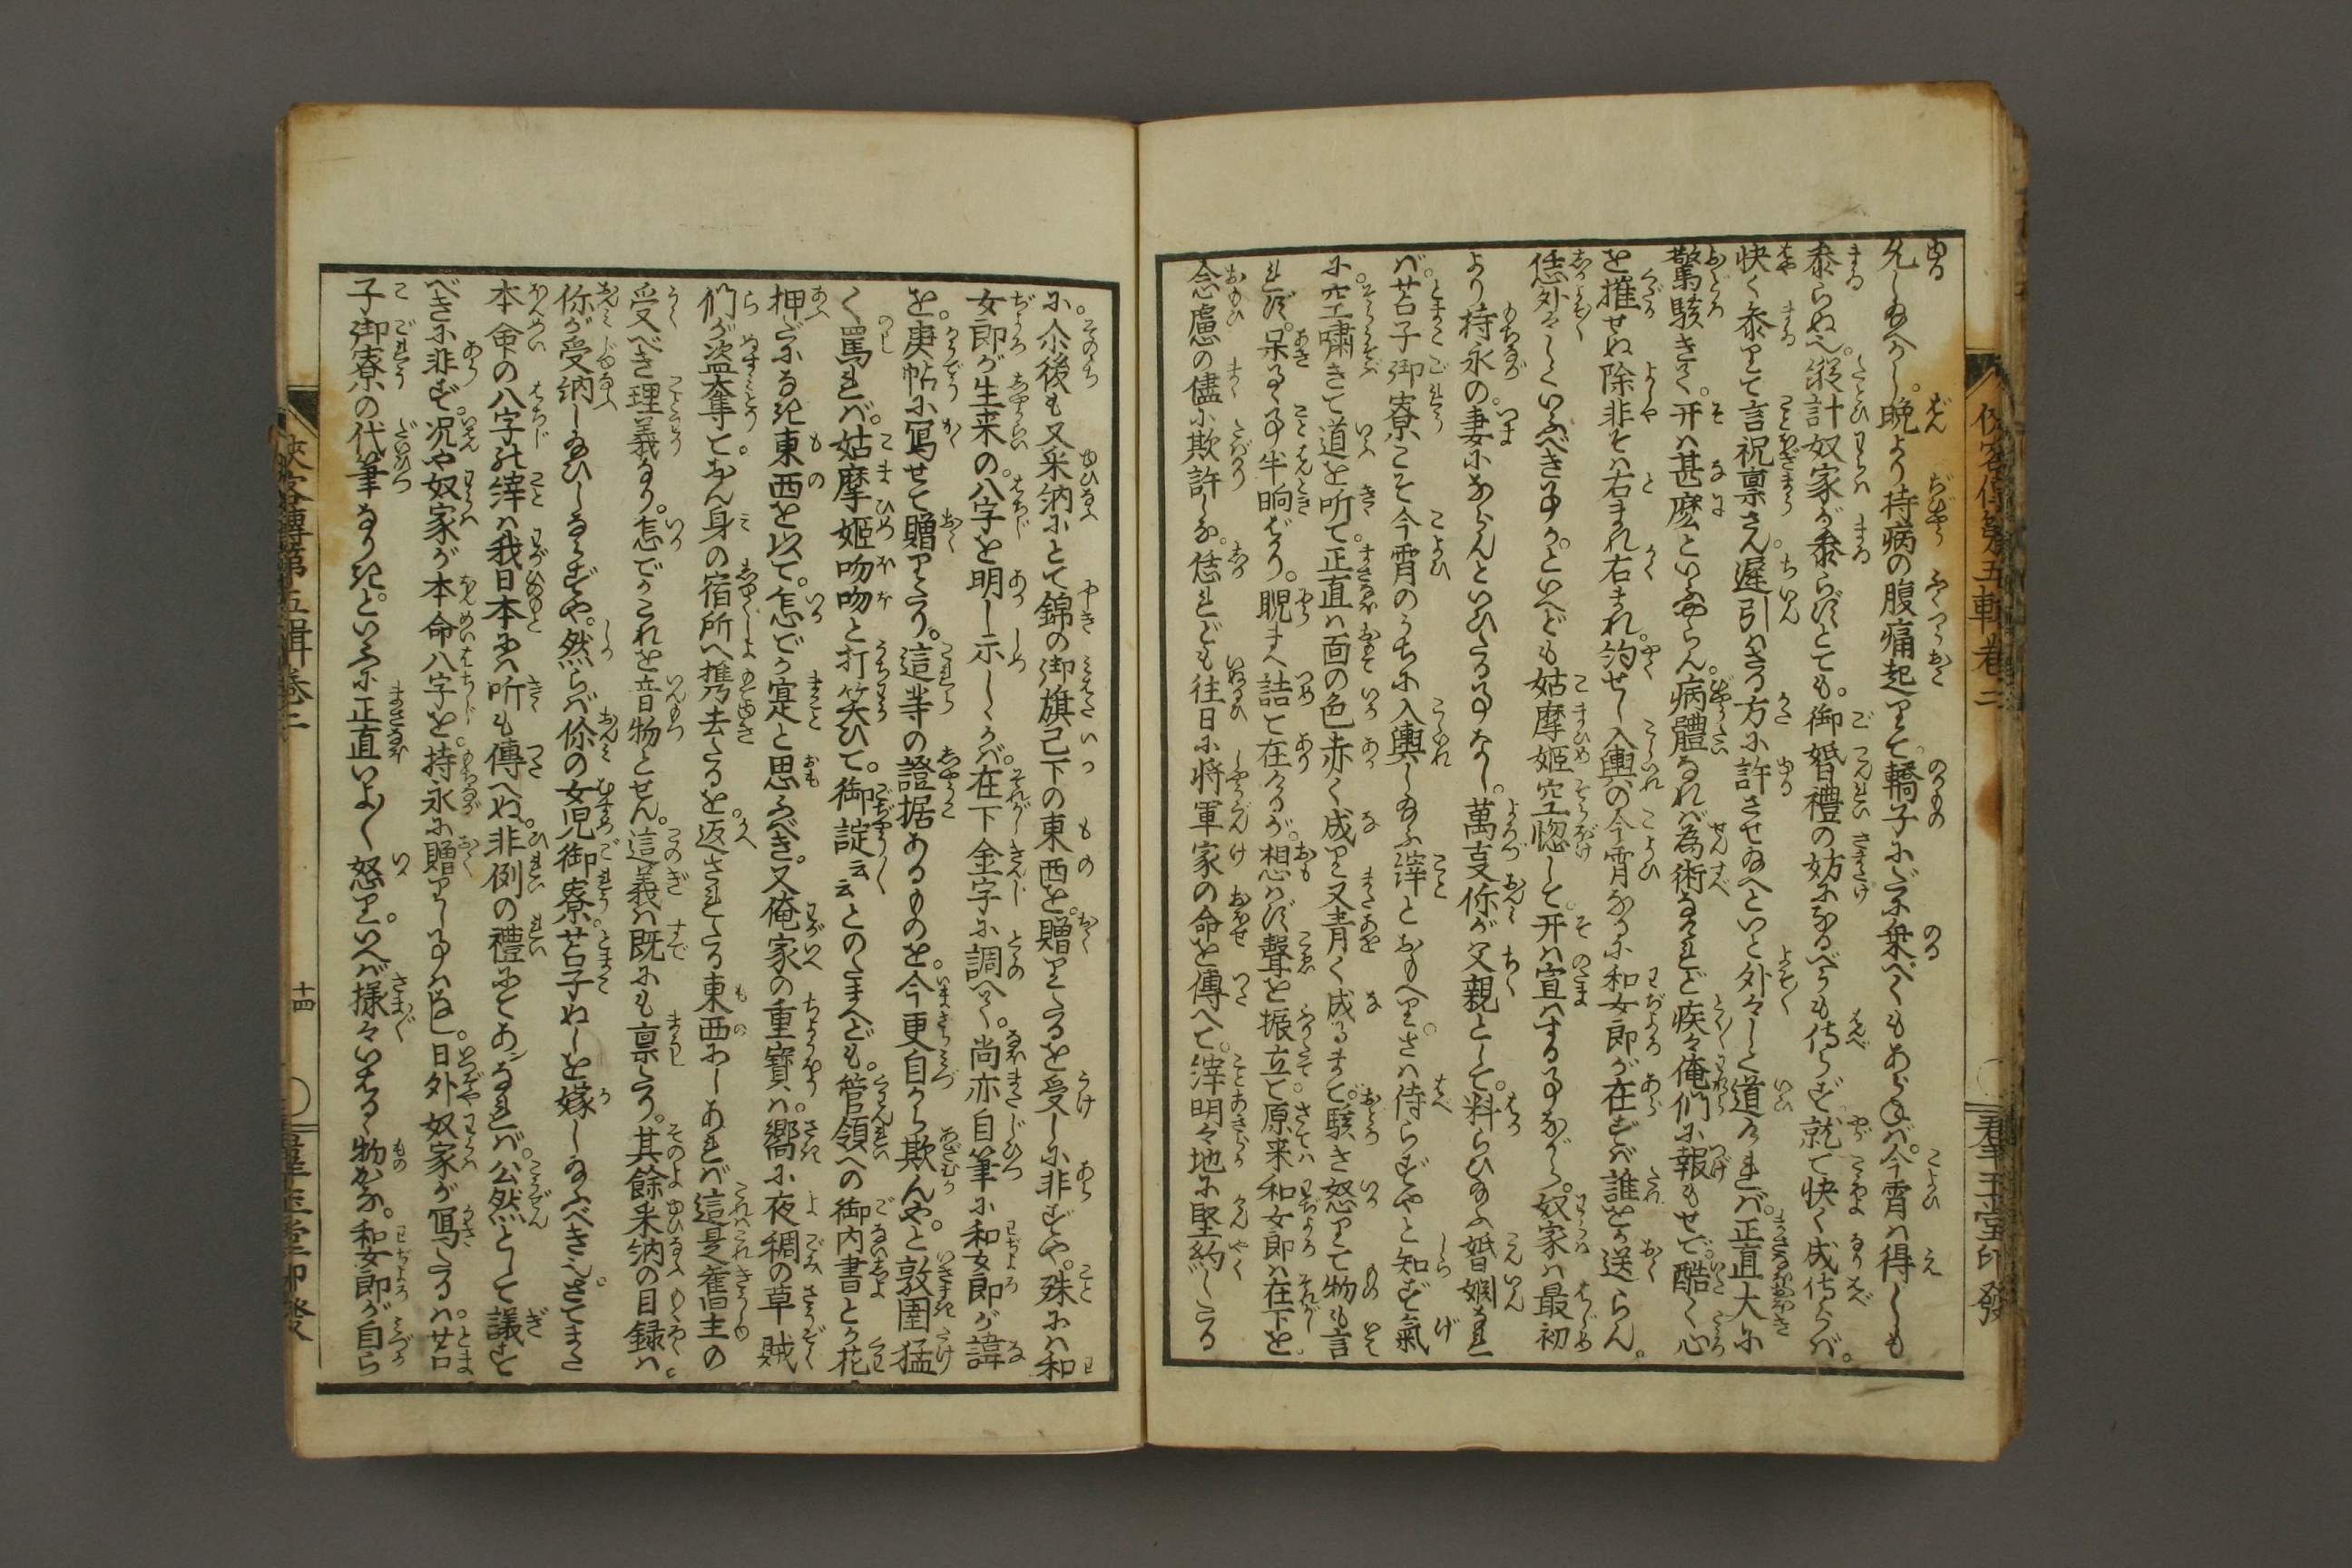 允し給へかし。晩より持病の腹痛起りて。轎子にだに乗べくもあらねば。今宵は得しも
参らぬ也。縦計奴家が参らずとても。御婚禮の妨になるべうも侍らず。就て快く成侍らば。
快く参りて言祝稟さん。遅引はさる方に許させ給へといと外々しく道れば。正直大に
驚駭きて。开は甚麼といふやらん。病體なれば為術なけれど疾々俺們に報もせで。酷く心
を摧せぬ除非そは右まれ右まれ。約せし入輿の今宵なるに和女郎が在ずば誰とか送らん。
恁外々しくいふべき事か。といへども姑摩姫空惚して。开は宣はする事ながら。奴家は最初
より持永の。妻にならんといひたる事なし。萬支你が父親として。料らひ給ふ婚姻なれ
ば。苫子御寮こそ今宵のうちに入輿し給ふ縡とおもへり。さは侍らずやと知ず氣
に空嘯きて道を听て。正直は面の色赤く成り又青く成るまで。駭き怒りて物も言
れず。呆るゝ事半晌ばかり。睨まへ詰て在けるが。想はず聲を振立て原来和女郎は在下を
念慮の儘に欺詐しな。恁れども往日に将軍家の命を傳へて。縡明々地に堅約したる
に。尒後も又采納にとて錦の御旗已下の東西を。贈りたるを受しに非ずや。殊には和
女郎が生来の。八字を明し示しゝかば。在下金字に調へて。尚亦自筆に和女郎が諱
を。庚帖に寫せて贈りたり。這等の證据あるものを。今更自から欺んや。と敦圉猛
く罵れば。姑摩姫吻吻と打笑ひて。御諚云云とのたまへども。管領への御内書とか花
押だになき東西を以て。怎でか寔と思ふべき。又俺家の重寶は。嚮に夜稠の草賊
們が盗奪とおん身の宿所へ携去たるを。返されたる東西にしあれば這是舊主の
受べき理義なり。怎でかこれを音物とせん。這義は既にも稟たり。其餘采納の目録は
你が受納し給ひしならずや。然らば你の女児御寮。苫子ぬしを嫁し給ふべき也。さてまた
本命の八字の縡は我日本には听も傳へぬ。非例の禮にてあなれば。公然として議すと
べきに非ず。况や奴家が本命八字を。持永に贈りし事はなし。日外奴家が寫たるは。苫
子御寮の代筆なりき。といふに正直いよ〳〵怒りて。いへば様々いはるゝ物かな。和女郎が自ら
侠客傳第五輯巻二
十四
群玉堂印發